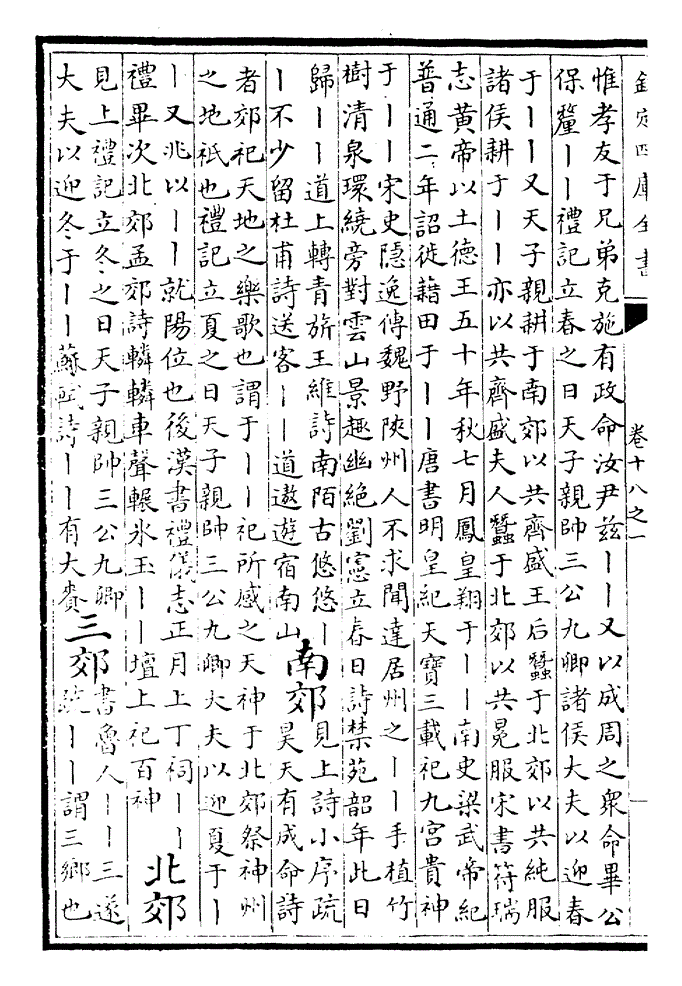 欽定四庫全書 卷十八之一 一
惟孝友于兄弟克施有政命汝尹兹丨丨又以成周之衆命畢公
保釐丨丨禮記立春之日天子親帥三公九卿諸侯大夫以迎春
于丨丨又天子親耕于南郊以共齊盛王后蠶于北郊以共純服
諸侯耕于丨丨亦以共齊盛夫人蠶于北郊以共冕服宋書符瑞
志黄帝以土德王五十年秋七月鳳皇翔于丨丨南史梁武帝紀
普通二年詔徙藉田于丨丨唐書明皇紀天寶三載祀九宫貴神
于丨丨宋史隱逸傳魏野陜州人不求聞達居州之丨丨手植竹
樹清泉環繞旁對雲山景趣幽絶劉憲立春日詩禁苑韶年此日
歸丨丨道上轉青旂王維詩南陌古悠悠丨
丨不少留杜甫詩送客丨丨道遨遊宿南山
南郊
見上詩小序疏
昊天有成命詩
者郊祀天地之樂歌也謂于丨丨祀所感之天神于北郊祭神州
之地祇也禮記立夏之日天子親帥三公九卿大夫以迎夏于丨
丨又兆以丨丨就陽位也後漢書禮儀志正月上丁祠丨丨
禮畢次北郊孟郊詩轔轔車聲輾氷玉丨丨壇上祀百神
北郊
見上禮記立冬之日天子親帥三公九卿
大夫以迎冬于丨丨蘇軾詩丨丨有大賚
三郊
書魯人丨丨三遂
疏丨丨謂三鄉也